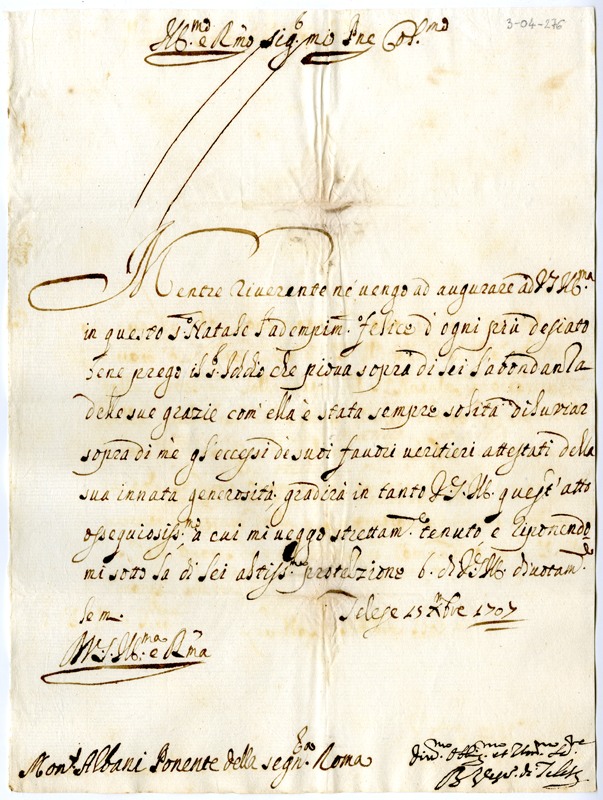 3-04-276
Ill.mo e R.mo Sig.r mio P.ne Col.mo
Mentre riverente ne vengo ad augurare à V.S. Ill.ma
in questo S.o Natale l'adempim.o felice d'ogni più desiato
bene prego il S. Iddio che piova sopra di lei l'abondanza
delle sue grazie com'ella è stata sempre solita diluviar
sopra di me gl'eccessi de suoi favori veritieri attestati della
sua innata generosità. gradirà in tanto V.S. Ill. quest'atto
ossequiosiss.mo à cui mi veggo strettam.e tenuto, e riponendo
mi sotto la di lei altiss.ma protezione b. à V.S. Ill. divotam.e
le m.
Telese 15 Xbre 1707
Di V.S. Ill.ma e R.ma
Mons.r Albani Ponente della segn.ra Roma
div.mo obb.mo et
di Telese